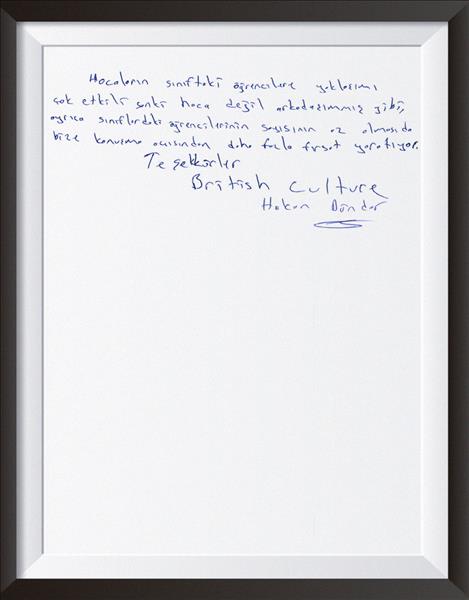 Hocaların sınıftaki öğrencilere yaklaşımı
çok etkili sanki hoca değil arkadaşımmış gibi,
ayrıca sınıflardaki öğrencilerinin sayısının az olmasıda
bize konuşma açısından daha fazla fırsat yaratıyor.
Teşekkürler
British culture
Hakan Dündar